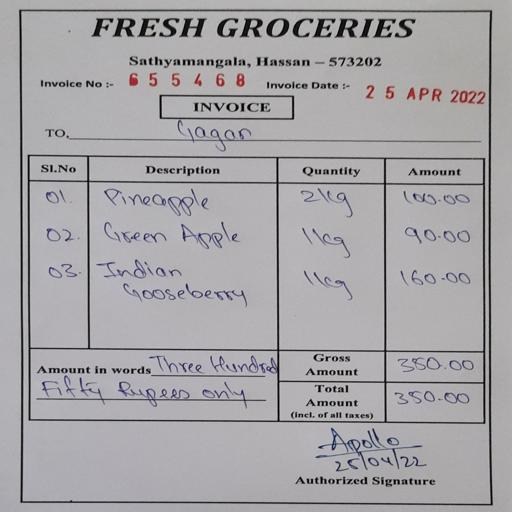 FRESH GROCERIES
Sathyamangala, Hassan – 573202
Invoice No :- 655468 Invoice Date :- 25 APR 2022
INVOICE
TO, Gagan
Sl.No Description Quantity Amount
01. Pineapple 2kg 100.00
02. Green Apple 1kg 90.00
03. Indian Gooseberry 1kg 160.00
Amount in words Three Hundred Fifty Rupees only
Gross Amount 350.00
Total Amount (incl. of all taxes) 350.00
Apollo
25/04/22
Authorized Signature